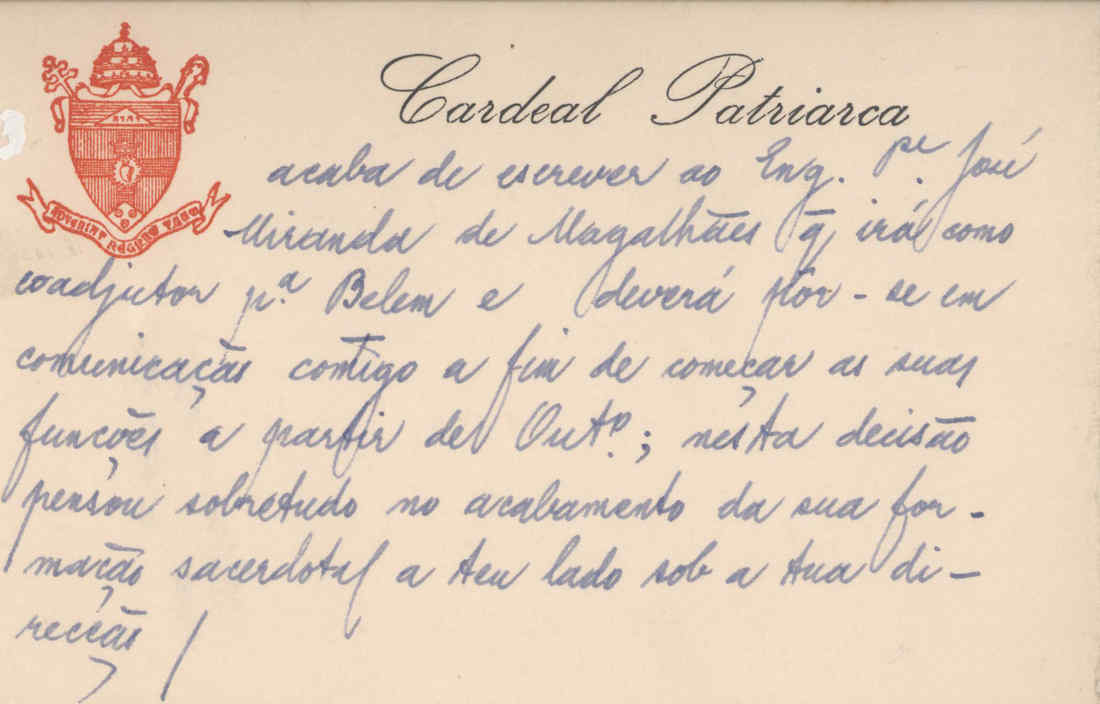 Cardeal Patriarca
acaba de escrever ao Eng. Pe. José
Miranda de Magalhães q̃ irá como
coadjutor p.ª Belem e deverá pôr-se em
comunicação contigo a fim de começar as suas
funções a partir de Out.º; nesta decisão
pensou sobretudo no acabamento da sua for-
mação sacerdotal a teu lado sob a tua di-
recção /
ADVENIAT REGNUM TUUM